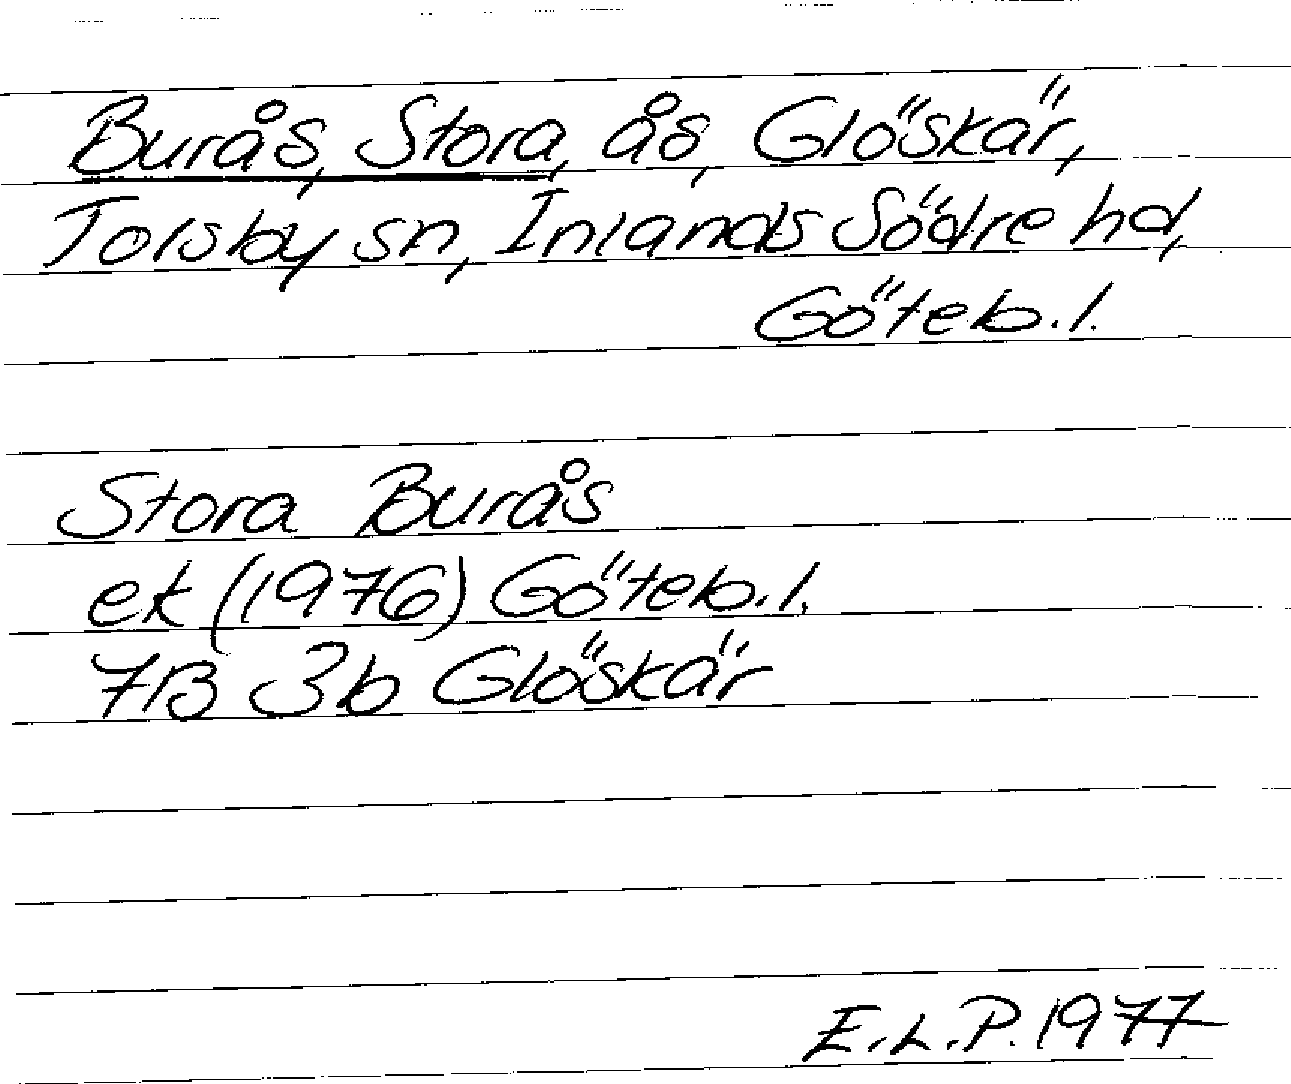 Burås, Stora, ås, Glöskär,
Torsby sn, Inlands Södre hd,
Göteb.l.
Stora Burås
ek (1976) Göteb.l.
7B 3b Glöskär
E.L.P. 1977